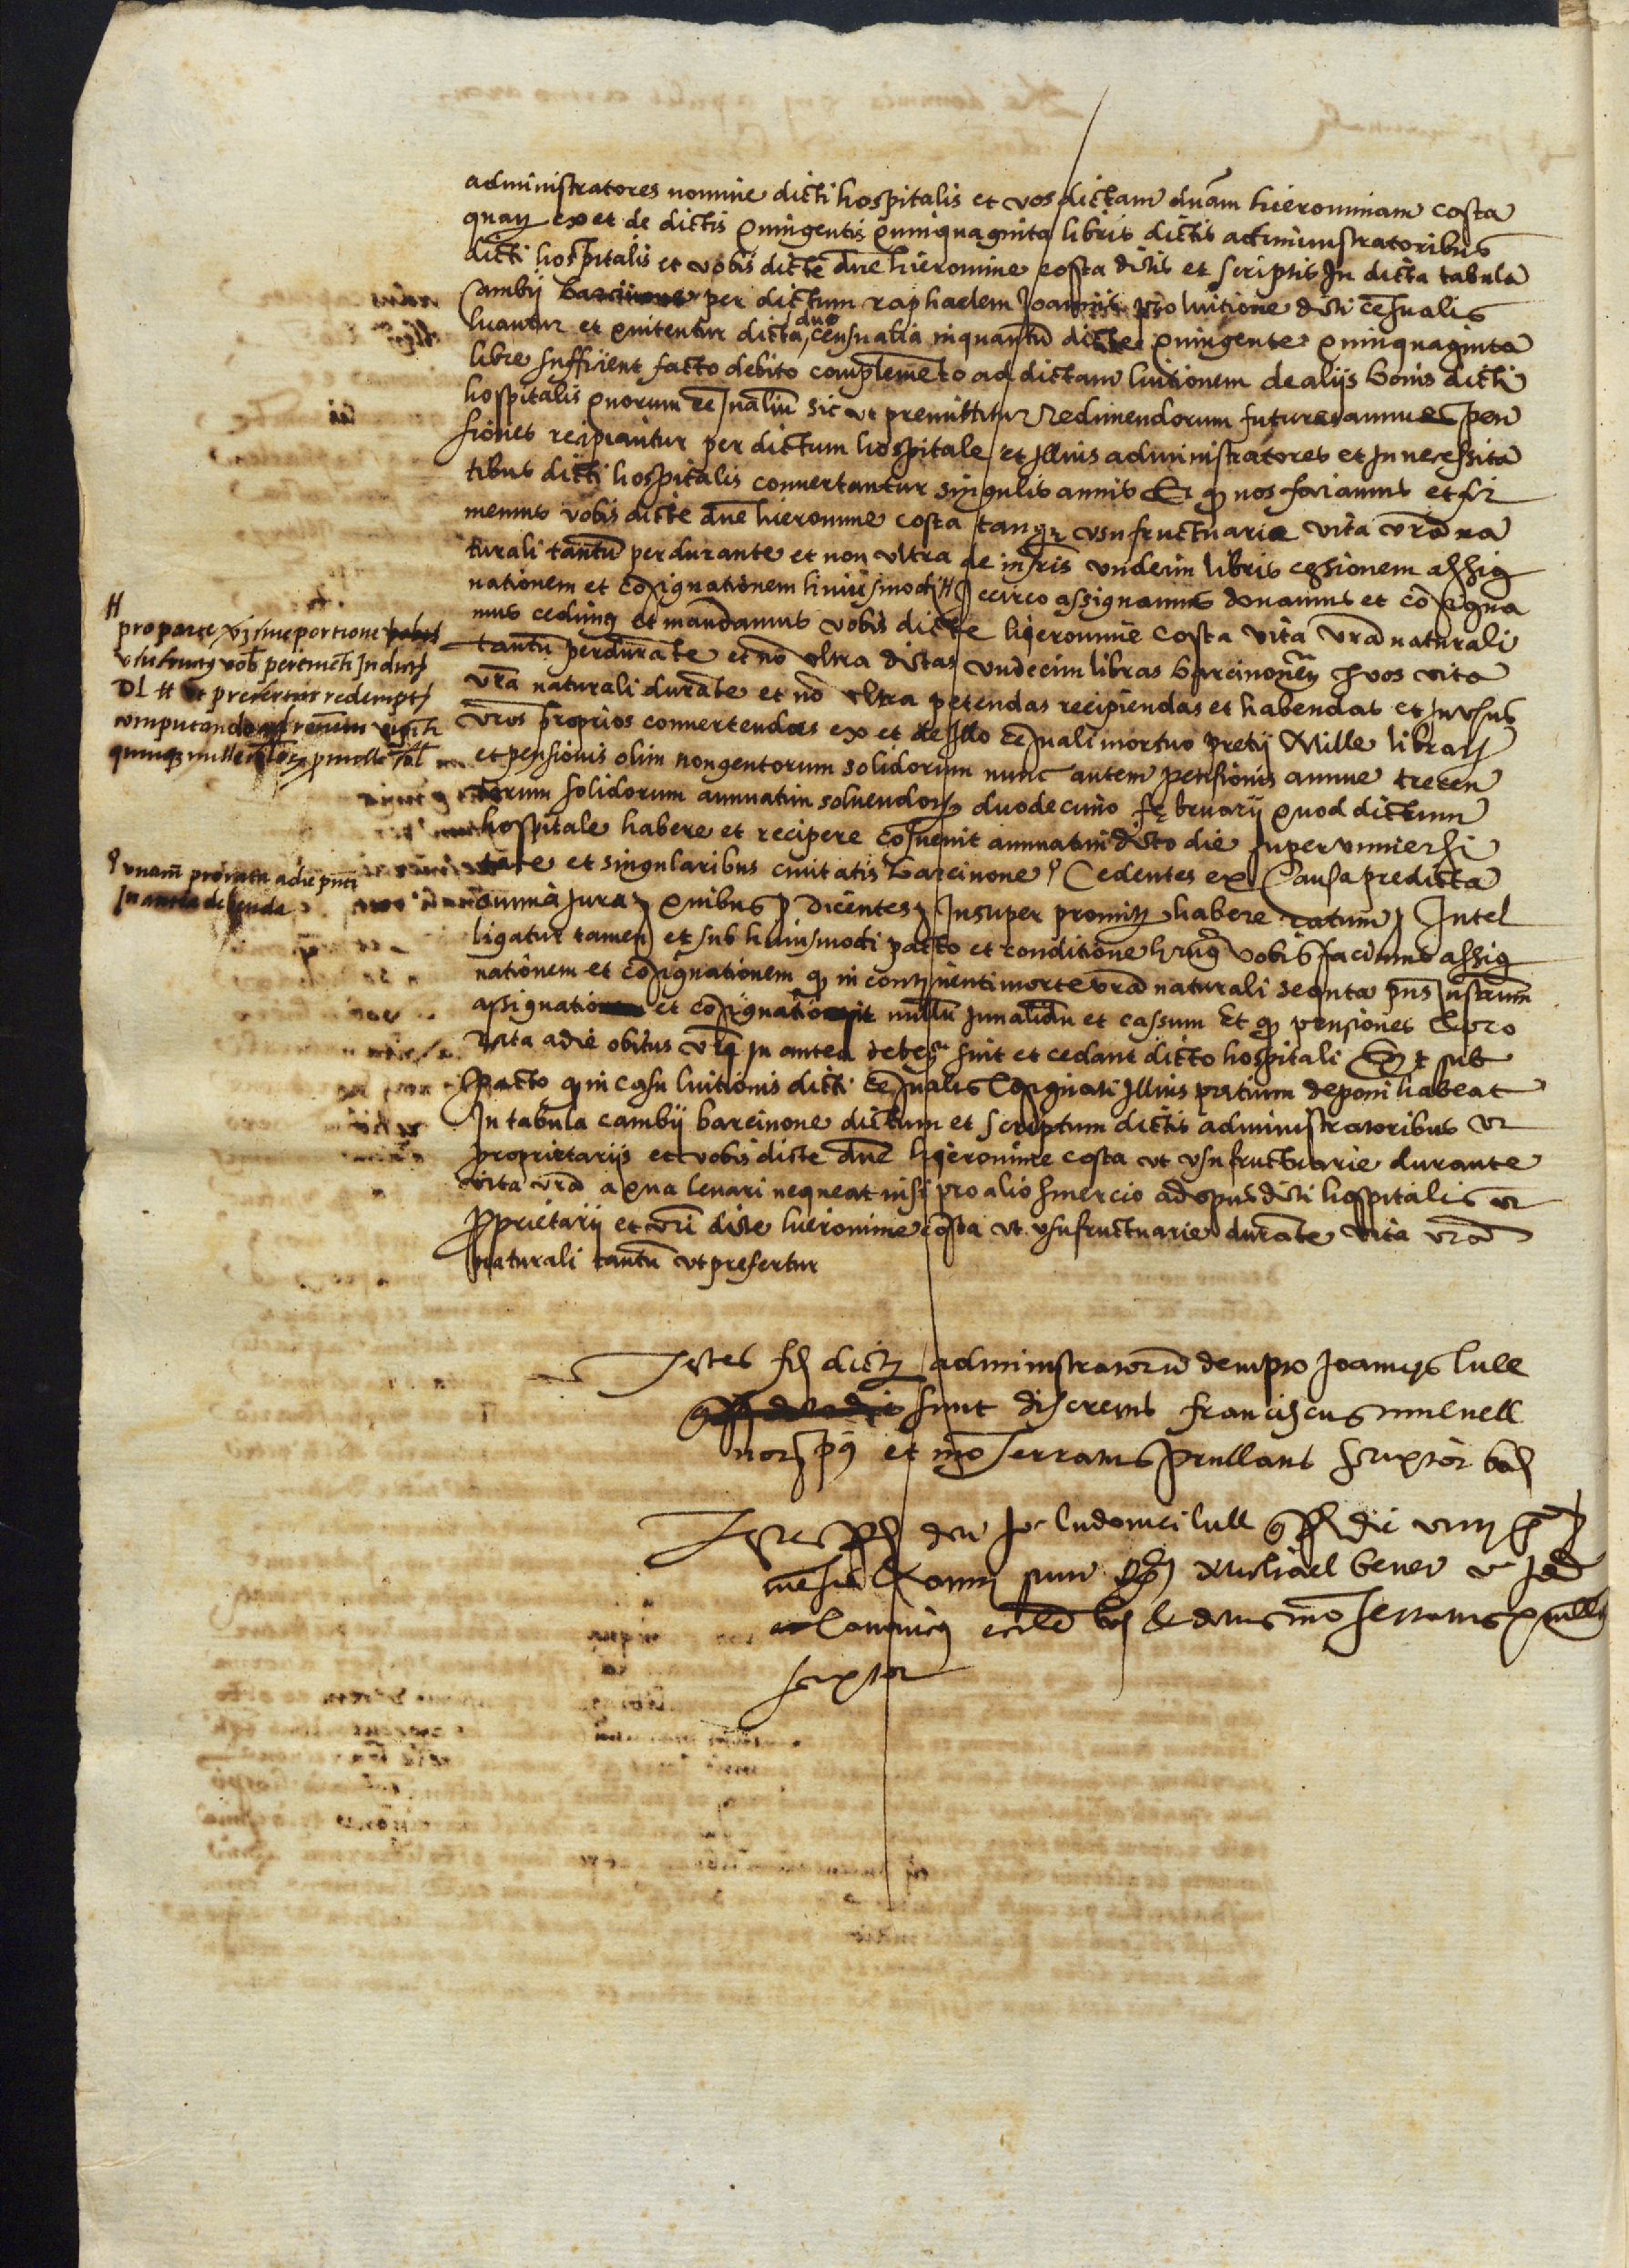 administratores nomine dicti hospitalis et vos dictam dnam hieronimam costa
quam ex et de dictis quingentis quinquaginta libris dictis administratoribus
dicti hospitalis et vobis dicte dne hieronime costa dictis et scriptis In dicta tabula
Cambij barcinone per dictum raphaelem Joannis pro luitione dicti cesualis
luantur et quitentur dicta duo censualia inquantu dicte quingente quinquaginta
libre sufficient facto debito complemeto ad dictam luitionem de alijs bonis dicti
hospitalis quorum cesualiu sic ut premittitur redimendorum future annue pen
siones recipiantur per dictum hospitale et Illius administratores et In necessita
tibus dicti hospitalis convertantur singulis annis Et q nos faciamus et fir
memus vobis dicte dne hieronime costa tanq usufructuarie vita vra na
turali tantu perdurante et non ultra de infris undecim libris cessionem assig
nationem et cosignationem huiusmodi # Iccirco assignamus donamus et cosigna
mus cedimus et mandamus vobis dicte hieronime costa vita vra naturali
tantu perdurate et no ultra dictas undecim libras barcinonen p vos vita
vra naturali durate et no ultra petendas recipiendas et habendas et In usus
vros proprios convertendas ex et de Illo cesuali mortuo pretij Mille librarum
et pensionis olim nongentorum solidorum nunc autem pensionis annue trecen
torum solidorum annuatim solvendorum duodecimo februarij quod dictum
hospitale habere et recipere cosuevit annuatim dicto die super universi
tate et singularibus civitatis barcinone Cedentes ex Causa predicta
omnia Jura quibus dicentes Insuper promitto habere ratum Intel
ligatur tamen et sub huiusmodi pacto et conditione vobis facimus assig
nationem et cosignationem q in continenti morte vra naturali sequta pns Instrum
assignatio et cosignatio sit nullu Invalidu et cassum Et q pensiones et pro
rata a die obitus vri In antea sint et cedant dicto hospitali Et sub
pacto q in casu luitionis dicti cesualis Cosignati Illius pretium deponi habeat
In tabula cambij barcinone dictum et scriptum dictis administratoribus ut
proprietarijs et vobis dicte dne hieronime costa ut usufructuarie durante
vita vra a qua levari nequeat nisi pro alio smercio ad opus dicti hospitalis ut
proprietarij et vri dicte hieronime costa ut usufructuarie durate vita vra
naturali tantu ut prefertur
#
pro parte sive portione vobis
ut prefertur redempt
computando
unam prorata a die pnti
In antea debenda
Testes administratoru dempto Joannis lull
sunt discretus franciscus
et moserratus prullans scriptor
Testes ludovici lull die
sunt Michael
moserratus
scriptor